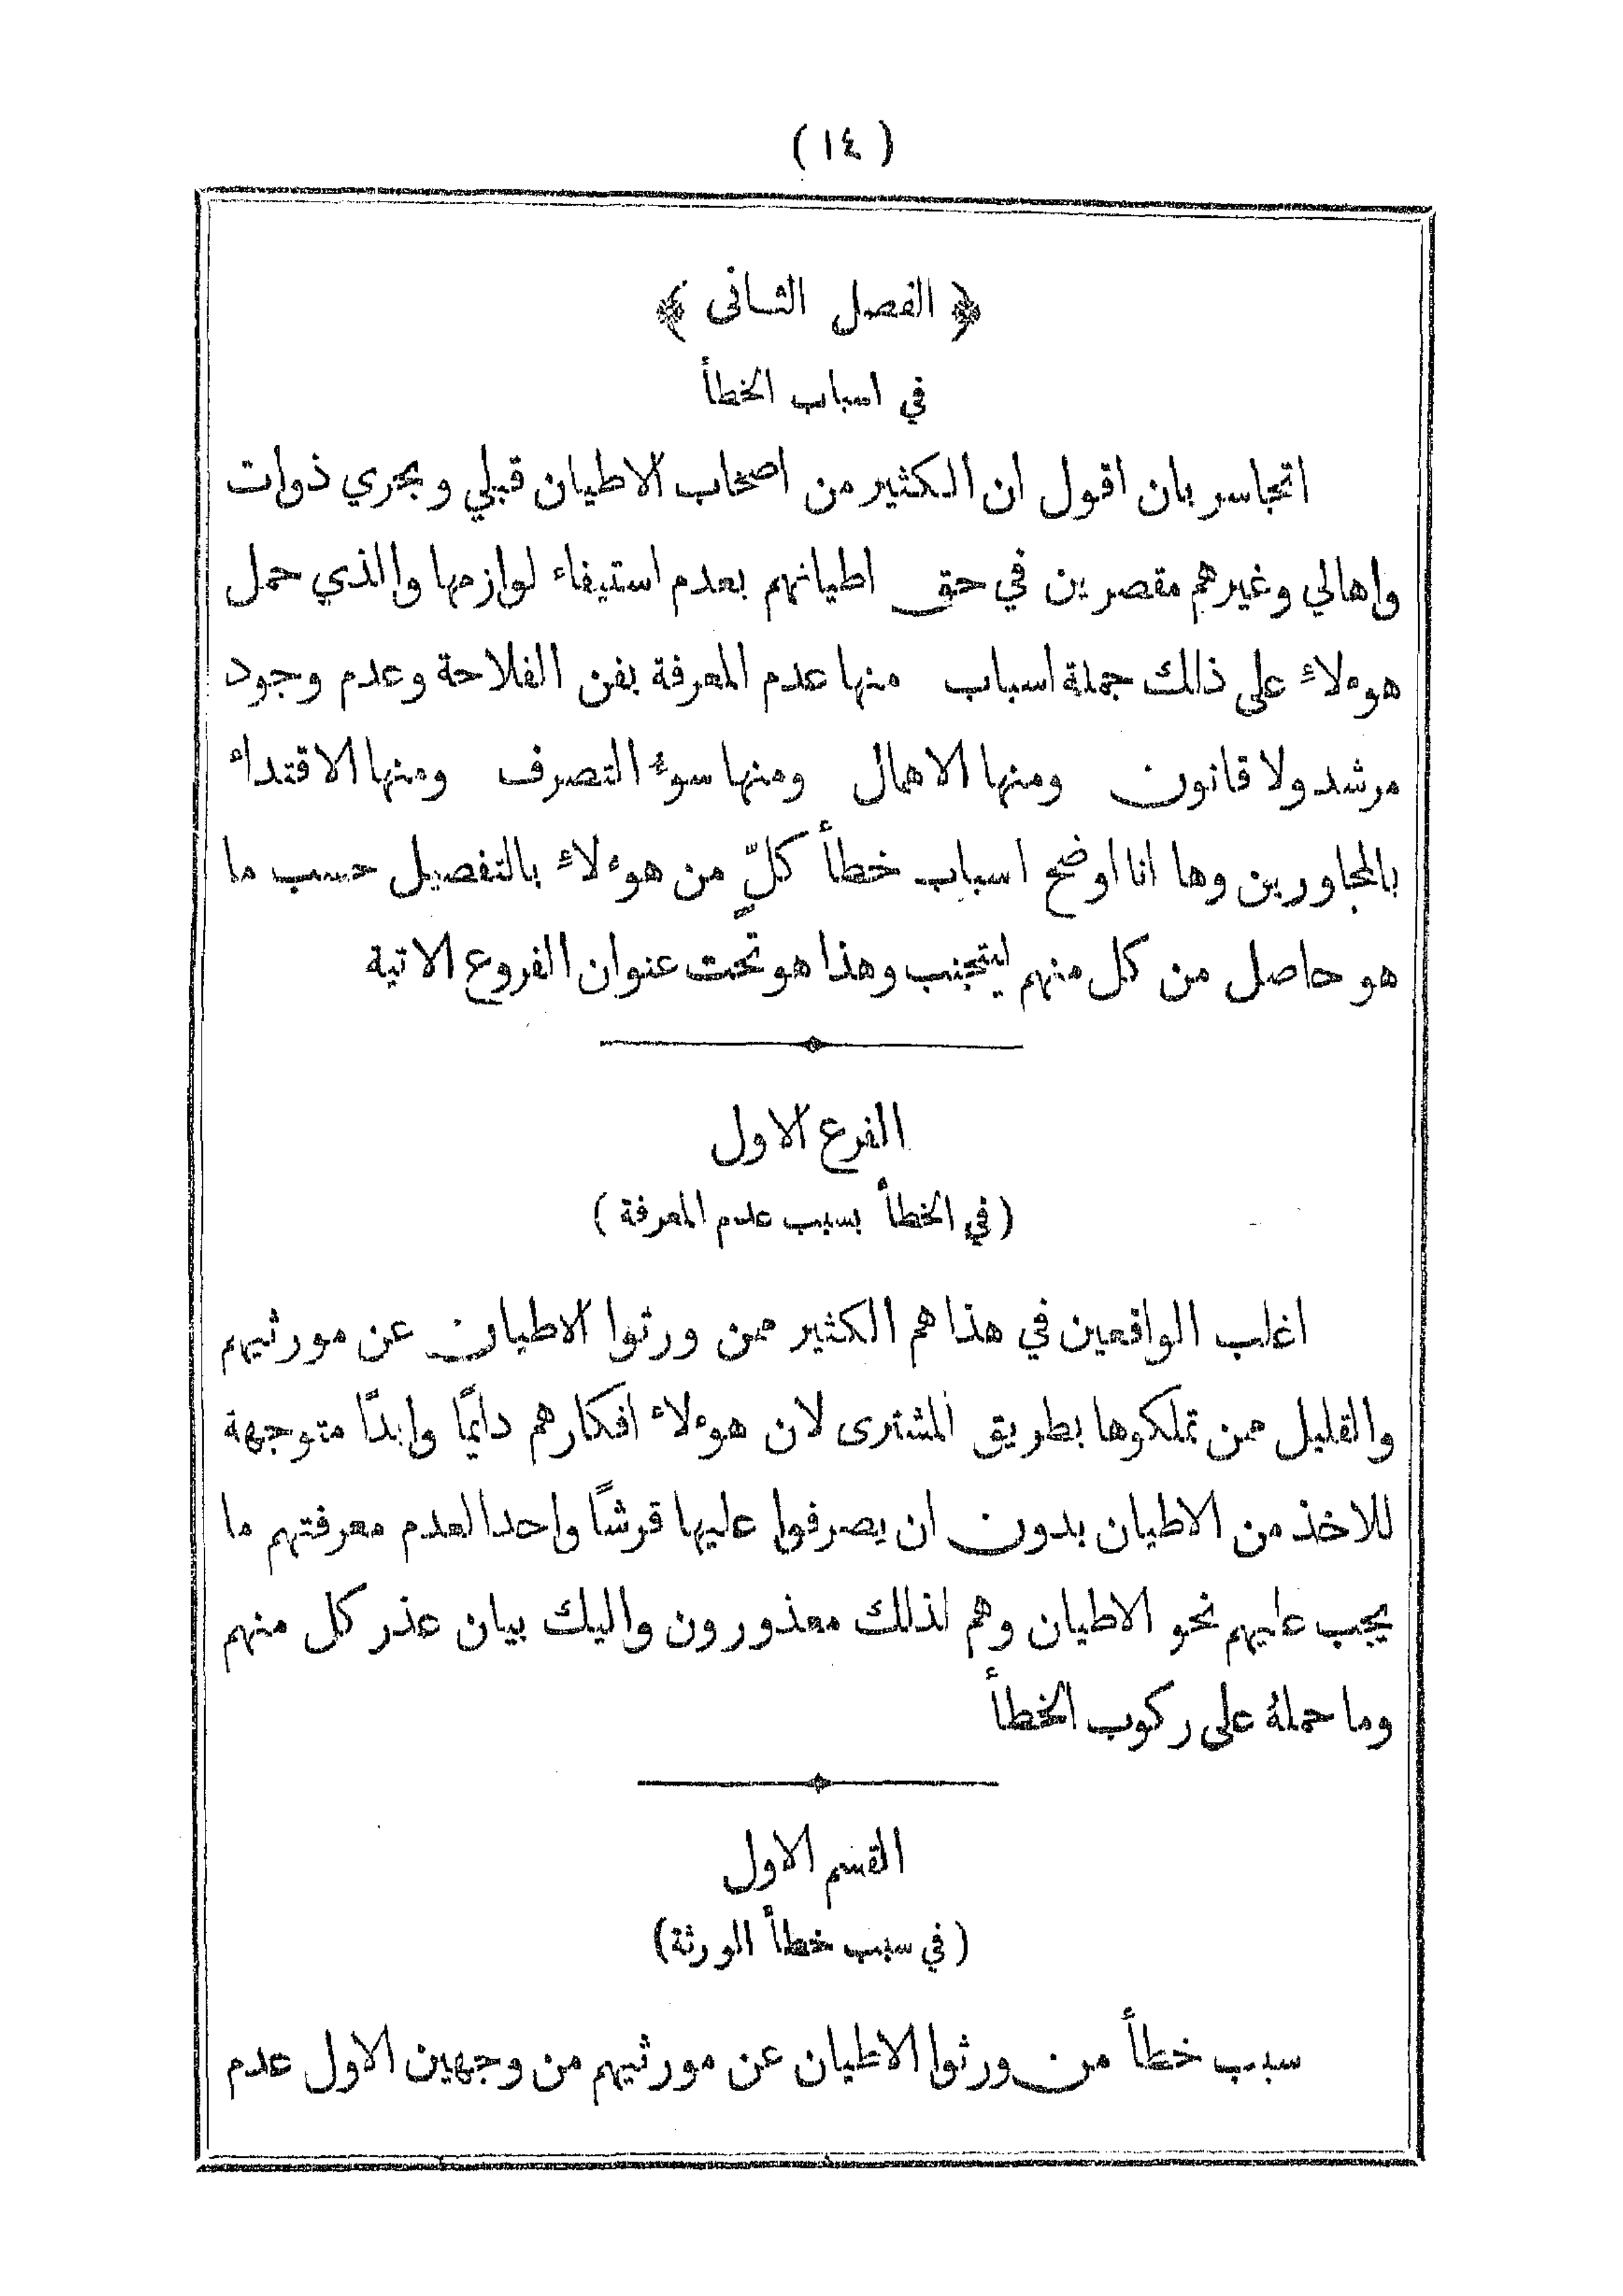 ( ١٤ )
﴿ الفصل الثانى ﴾
في اسباب الخطأ
اتجاسر بان اقول ان الكثير من اصحاب الاطيان قبلي وبحري ذوات
واهالي وغيرهم مقصرين في حق اطيانهم بعدم استيفاء لوازمها والذي حمل
هوءلاء على ذلك جملة اسباب منها عدم المعرفة بفن الفلاحة وعدم وجود
مرشد ولا قانون ومنها الاهمال ومنها سوء التصرف ومنها الاقتداء
بالمجاورين وها انا اوضح اسباب خطأ كلّ من هوءلاء بالتفصيل حسب ما
هو حاصل من كلٍ منهم ليتجنب وهذا هو تحت عنوان الفروع الاتية
الفرع الاول
(في الخطأ بسبب عدم المعرفة)
اغلب الواقعين في هذا هم الكثير ممن ورثوا الاطيان عن مورثيهم
والقليل ممن تملكوها بطريق المشترى لان هوءلاء افكارهم دائمًا وابدًا متوجهة
للاخذ من الاطيان بدون ان يصرفوا عليها قرشًا واحدا لعدم معرفتهم ما
يجب عليهم نحو الاطيان وهم لذلك معذورون واليك بيان عذر كل منهم
وما حملهُ على ركوب الخطأ
القسم الاول
(في سبب خطأ الورثة)
سبب خطأ من ورثوا الاطيان عن مورثيهم من وجهين الاول عدم